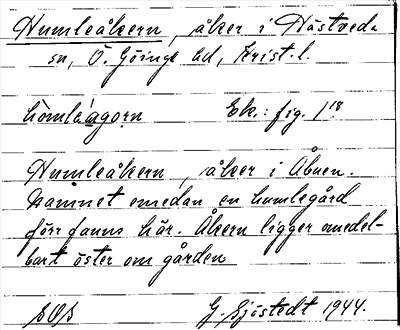 Humleåkern, åker i Hästveda
sn, Ö. Göinge hd, Krist. l.
hòmləàgorn Ek.: fig. 1
Humleåkern, åker i Åbuen.
Namnet emedan en humlegård
förr fanns här. Åkern ligger omedel-
bart öster om gården
G. Sjöstedt 1944.